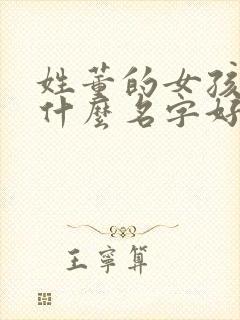 姓董的女孩
什麼名字好
王寧算